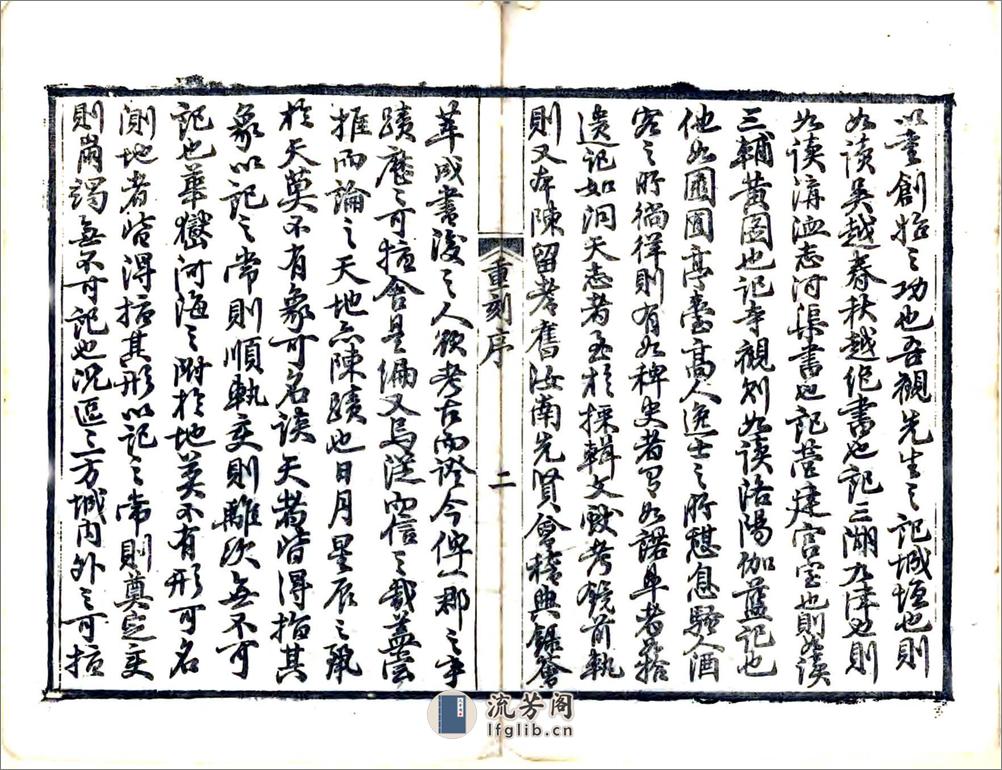 以重創始之功也吾觀先生之記城垣也則
如讀吳越春秋越絕書也記三湖九津也則
如讀溝洫志河渠書也記營建宮室也則如讀
三輔黃圖也記寺觀刹如讀洛陽伽藍記也
他如園囿亭臺高人逸士之所憩息騷人酒
客之所徜徉則有如稗史者有如諾皋者拾
遺記如洞天志者至於採輯文獻考鏡前執
則又本陳留耆舊汝南先賢會稽典錄薈
重刻序
二
萃成書後之人欲考古而證今俾一郡之事
蹟歷之可指舍是編又烏從而信之哉蓋嘗
推而論之天地亦陳蹟也日月星辰之
於天莫不有象可名談天者皆得指其
象以記之常則順軌變則離次無不可
記也華嶽河海之附於地莫不有形可名
測地者皆得指其形以記之常則奠定變
則崩竭無不可記也況區區一方城內外之可指
流芳阁
lfglib.cn